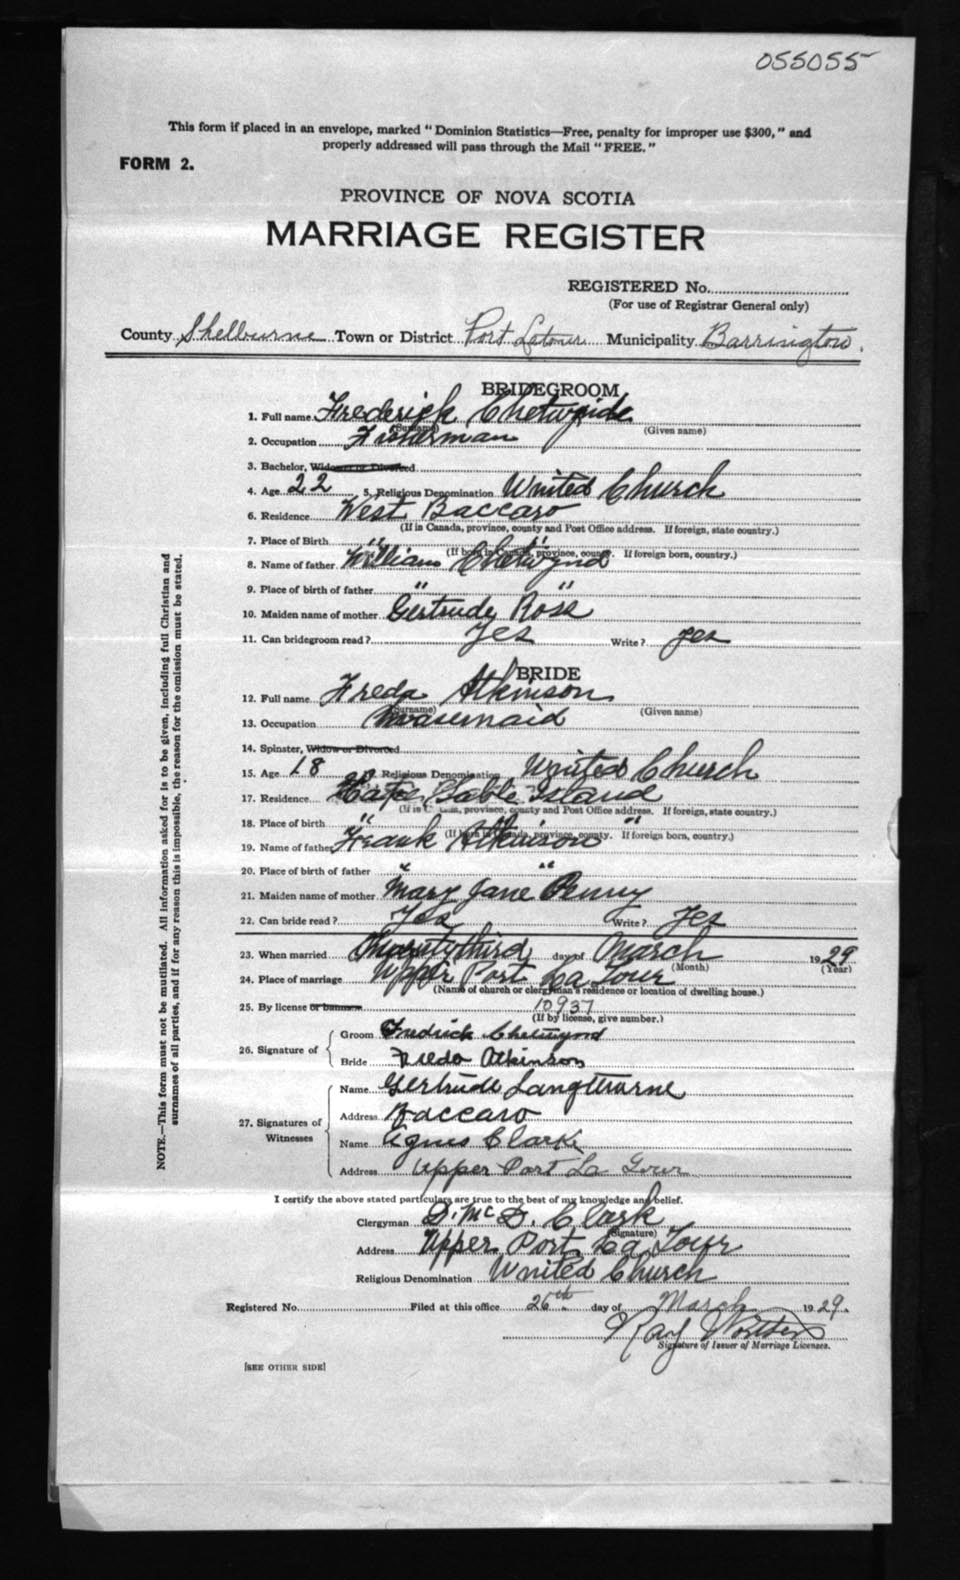 055055
This form if placed in an envelope, marked "Dominion Statistics—Free, penalty for improper use $300," and
properly addressed will pass through the Mail "FREE."
FORM 2.
PROVINCE OF NOVA SCOTIA
MARRIAGE REGISTER
REGISTERED No.
(For use of Registrar General only)
County Shelburne Town or District Port Latour Municipality Barrington.
BRIDEGROOM
1. Full name Frederick Chetwynde
(Surname) (Given name)
2. Occupation Fisherman
3. Bachelor, Widower or Divorced
4. Age 22 5. Religious Denomination United Church
6. Residence West Baccaro
(If in Canada, province, county and Post Office address. If foreign, state country.)
7. Place of Birth " "
(If born in Canada, province, county. If foreign born, country.)
8. Name of father William Chetwynd
9. Place of birth of father " "
10. Maiden name of mother Gertrude Ross
11. Can bridegroom read? Yes Write? Yes
BRIDE
12. Full name Freda Atkinson
(Surname) (Given name)
13. Occupation
14. Spinster, Widow or Divorced
15. Age 18 Religious Denomination United Church
17. Residence Cape Sable Island
(If in Canada, province, county and Post Office address. If foreign, state country.)
18. Place of birth " "
(If born in Canada, province, county. If foreign born, country.)
19. Name of father Frank Atkinson
20. Place of birth of father " "
21. Maiden name of mother Mary Jane Penny
22. Can bride read? Yes Write? Yes
23. When married Twenty third day of March 1929
(Month) (Year)
24. Place of marriage Upper Port La Tour
(Name of church or clergyman's residence or location of dwelling house.)
25. By license or banns 10937
(If by license, give number.)
26. Signature of Groom Fredrick Chetwynd
Bride Freda Atkinson
27. Signatures of Witnesses
Name Gertrude Langthorne
Address Baccaro
Name Agnes Clark
Address Upper Port La Tour
I certify the above stated particulars are true to the best of my knowledge and belief.
Clergyman D. McD. Clark
(Signature)
Address Upper Port La Tour
Religious Denomination United Church
Registered No. Filed at this office 26th day of March 1929.
Ray
Signature of Issuer of Marriage Licenses.
[SEE OTHER SIDE]
NOTE.—This form must not be mutilated. All information asked for is to be given, including full Christian and
surnames of all parties, and if for any reason this is impossible, the reason for the omission must be stated.